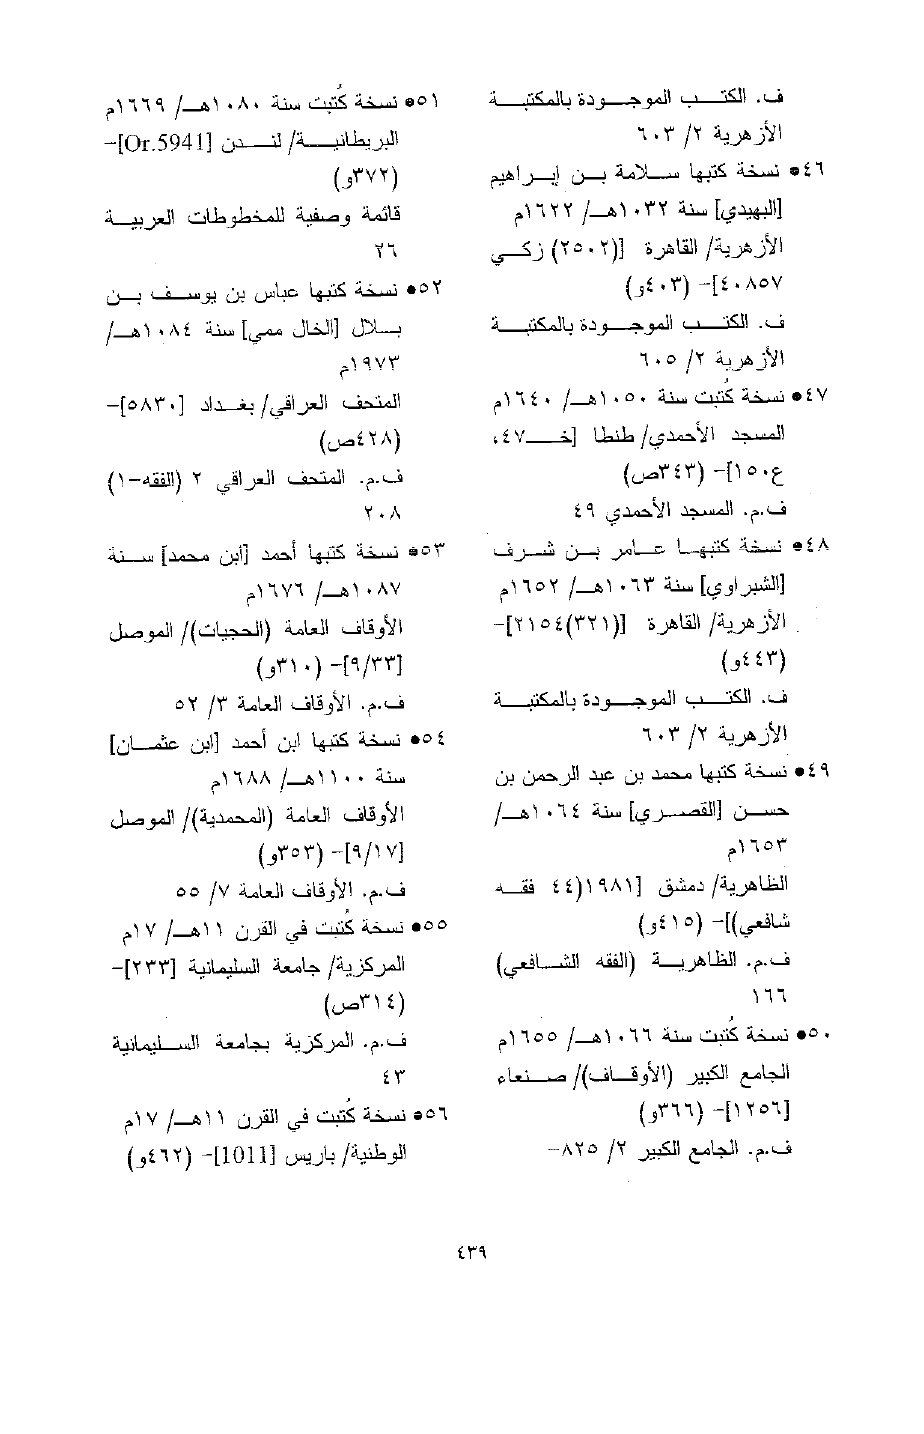 ف. الكتب الموجودة بالمكتبة
الأزهرية ٢/ ٦٠٣
٤٦● نسخة كتبها سلامة بن إبراهيم
[البهيدي] سنة ١٠٣٢هـ/ ١٦٢٢م
الأزهرية/ القاهرة [(٢٥٠٢) زكي
٤٠٨٥٧]- (٤٠٣و)
ف. الكتب الموجودة بالمكتبة
الأزهرية ٢/ ٦٠٥
٤٧● نسخة كُتبت سنة ١٠٥٠هـ/ ١٦٤٠م
المسجد الأحمدي/ طنطا [خ ٤٧،
ع١٥٠]- (٣٤٣ص)
ف.م. المسجد الأحمدي ٤٩
٤٨● نسخة كتبها عامر بن شرف
[الشبراوي] سنة ١٠٦٣هـ/ ١٦٥٢م
الأزهرية/ القاهرة [(٣٢١)٢١٥٤]-
(٤٤٣و)
ف. الكتب الموجودة بالمكتبة
الأزهرية ٢/ ٦٠٣
٤٩● نسخة كتبها محمد بن عبد الرحمن بن
حسن [القصري] سنة ١٠٦٤هـ/
١٦٥٣م
الظاهرية/ دمشق [١٩٨١(٤٤ فقه
شافعي)]- (٤١٥و)
ف.م. الظاهرية (الفقه الشافعي)
١٦٦
٥٠● نسخة كُتبت سنة ١٠٦٦هـ/ ١٦٥٥م
الجامع الكبير (الأوقاف)/ صنعاء
[١٢٥٦]- (٣٦٦و)
ف.م. الجامع الكبير ٢/ ٨٢٥-
٥١● نسخة كُتبت سنة ١٠٨٠هـ/ ١٦٦٩م
البريطانية/ لندن [Or.5941]-
(٣٧٢و)
قائمة وصفية للمخطوطات العربية
٢٦
٥٢● نسخة كتبها عباس بن يوسف بن
بلال [الخال ممي] سنة ١٠٨٤هـ/
١٩٧٣م
المتحف العراقي/ بغداد [٥٨٣٠]-
(٤٢٨ص)
ف.م. المتحف العراقي ٢ (الفقه-١)
٢٠٨
٥٣● نسخة كتبها أحمد [ابن محمد] سنة
١٠٨٧هـ/ ١٦٧٦م
الأوقاف العامة (الحجيات)/ الموصل
[٩/٣٣]- (٣١٠و)
ف.م. الأوقاف العامة ٣/ ٥٢
٥٤● نسخة كتبها ابن أحمد [ابن عثمان]
سنة ١١٠٠هـ/ ١٦٨٨م
الأوقاف العامة (المحمدية)/ الموصل
[٩/١٧]- (٣٥٣و)
ف.م. الأوقاف العامة ٧/ ٥٥
٥٥● نسخة كُتبت في القرن ١١هـ/ ١٧م
المركزية/ جامعة السليمانية [٢٣٣]-
(٣١٤ص)
ف.م. المركزية بجامعة السليمانية
٤٣
٥٦● نسخة كُتبت في القرن ١١هـ/ ١٧م
الوطنية/ باريس [1011]- (٤٦٢و)
٤٣٩